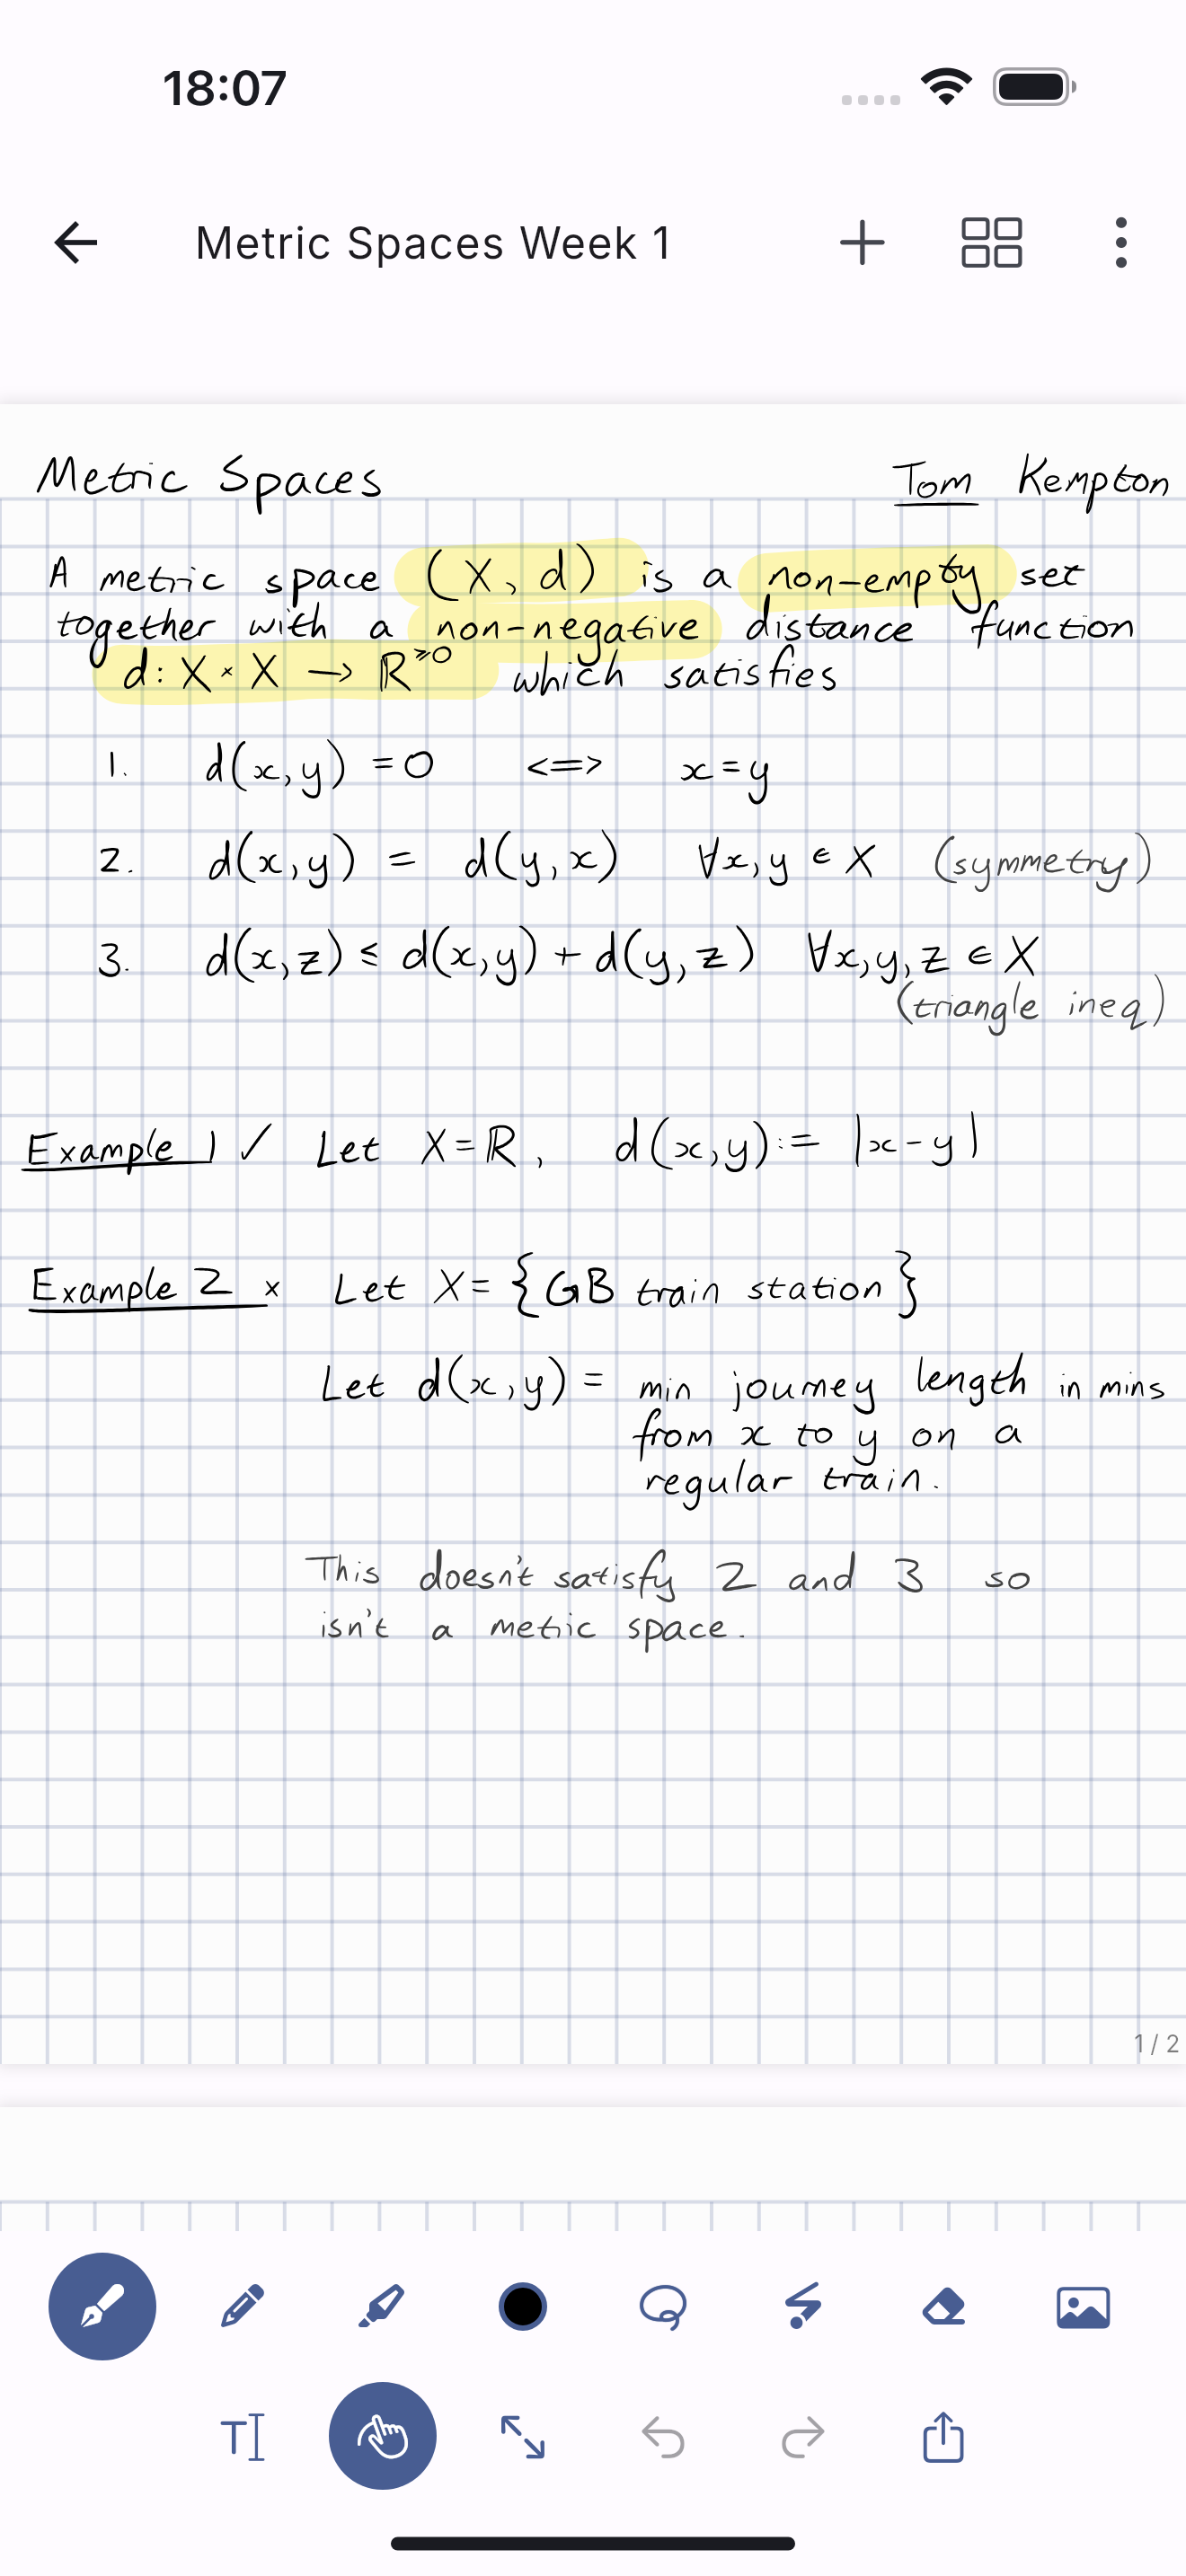 18:07
Metric Spaces Week 1
Metric Spaces Tom Kempton
A metric space (X, d) is a non-empty set
together with a non-negative distance function
d: X × X → ℝ^≥0 which satisfies
1. d(x,y) = 0 <=> x = y
2. d(x,y) = d(y,x) ∀x,y ∈ X (symmetry)
3. d(x,z) ≤ d(x,y) + d(y,z) ∀x,y,z ∈ X
(triangle ineq)
Example 1 ✓ Let X = ℝ, d(x,y) := |x-y|
Example 2 × Let X = {GB train station}
Let d(x,y) = min journey length in mins
from x to y on a
regular train.
This doesn't satisfy 2 and 3 so
isn't a metric space.
1 / 2